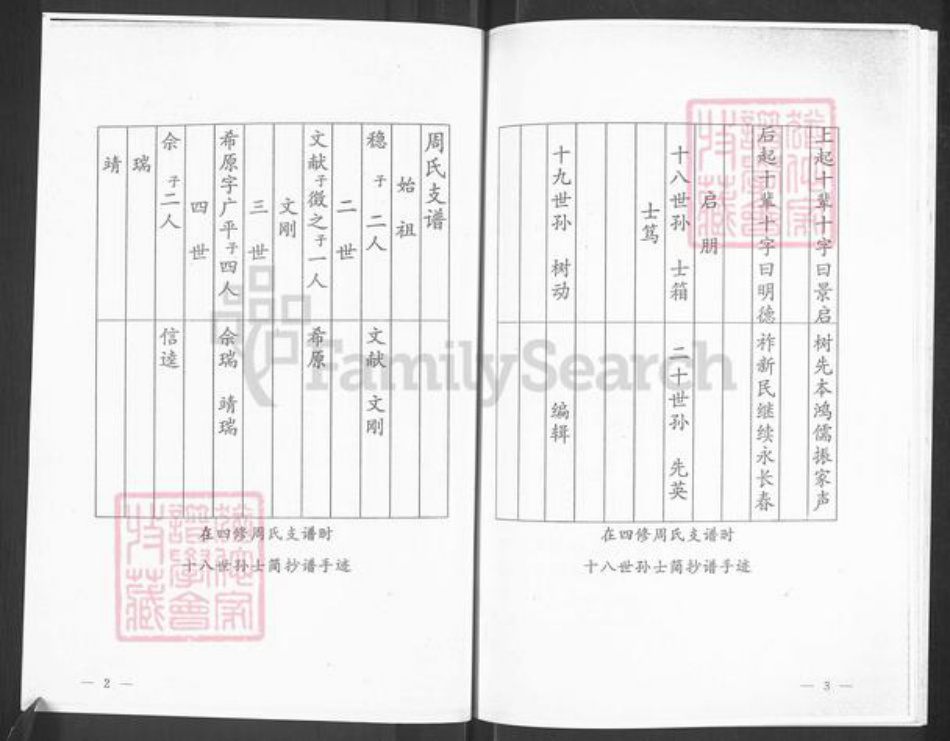 周氏支谱
始祖
稳 子 二人 文献 文刚
二世
文献子徵之子一人 希原
文刚
三世
希原字广平子四人 佘瑞 靖瑞
四世
佘 子二人 信逵
瑞
靖
在四修周氏支谱时
十八世孙士简抄谱手迹
— 2 —
上起十辈十字曰景启树先本鸿儒振家声
后起十辈十字曰明德祚新民继续永长春
启朋
十八世孙 士箱 二十世孙 先英
士笃
十九世孙 树动 编辑
在四修周氏支谱时
十八世孙士简抄谱手迹
— 3 —
FamilySearch